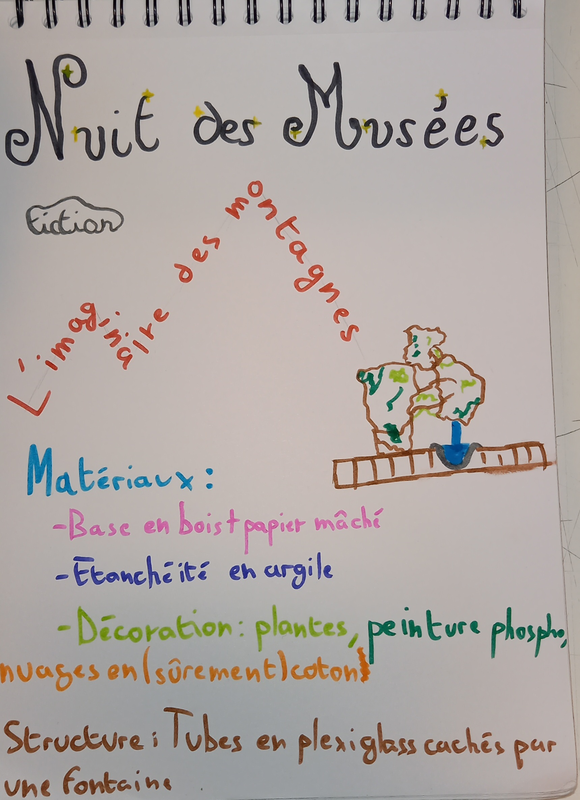 Nuit des Musées
Fiction
L'imaginaire des montagnes
Matériaux :
-Base en bois+papier mâché
-Etanchéité en argile
-Décoration : plantes, peinture phospho,
nuages en (sûrement) coton
Structure : Tubes en plexiglass cachés par
une fontaine